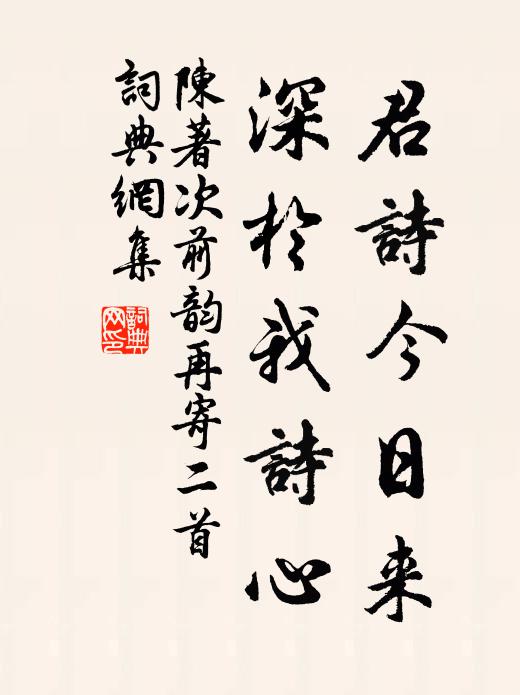 君詩今日来
深於我詩心
陳著次前韵再寄二首
詞典網集
詞典
网印